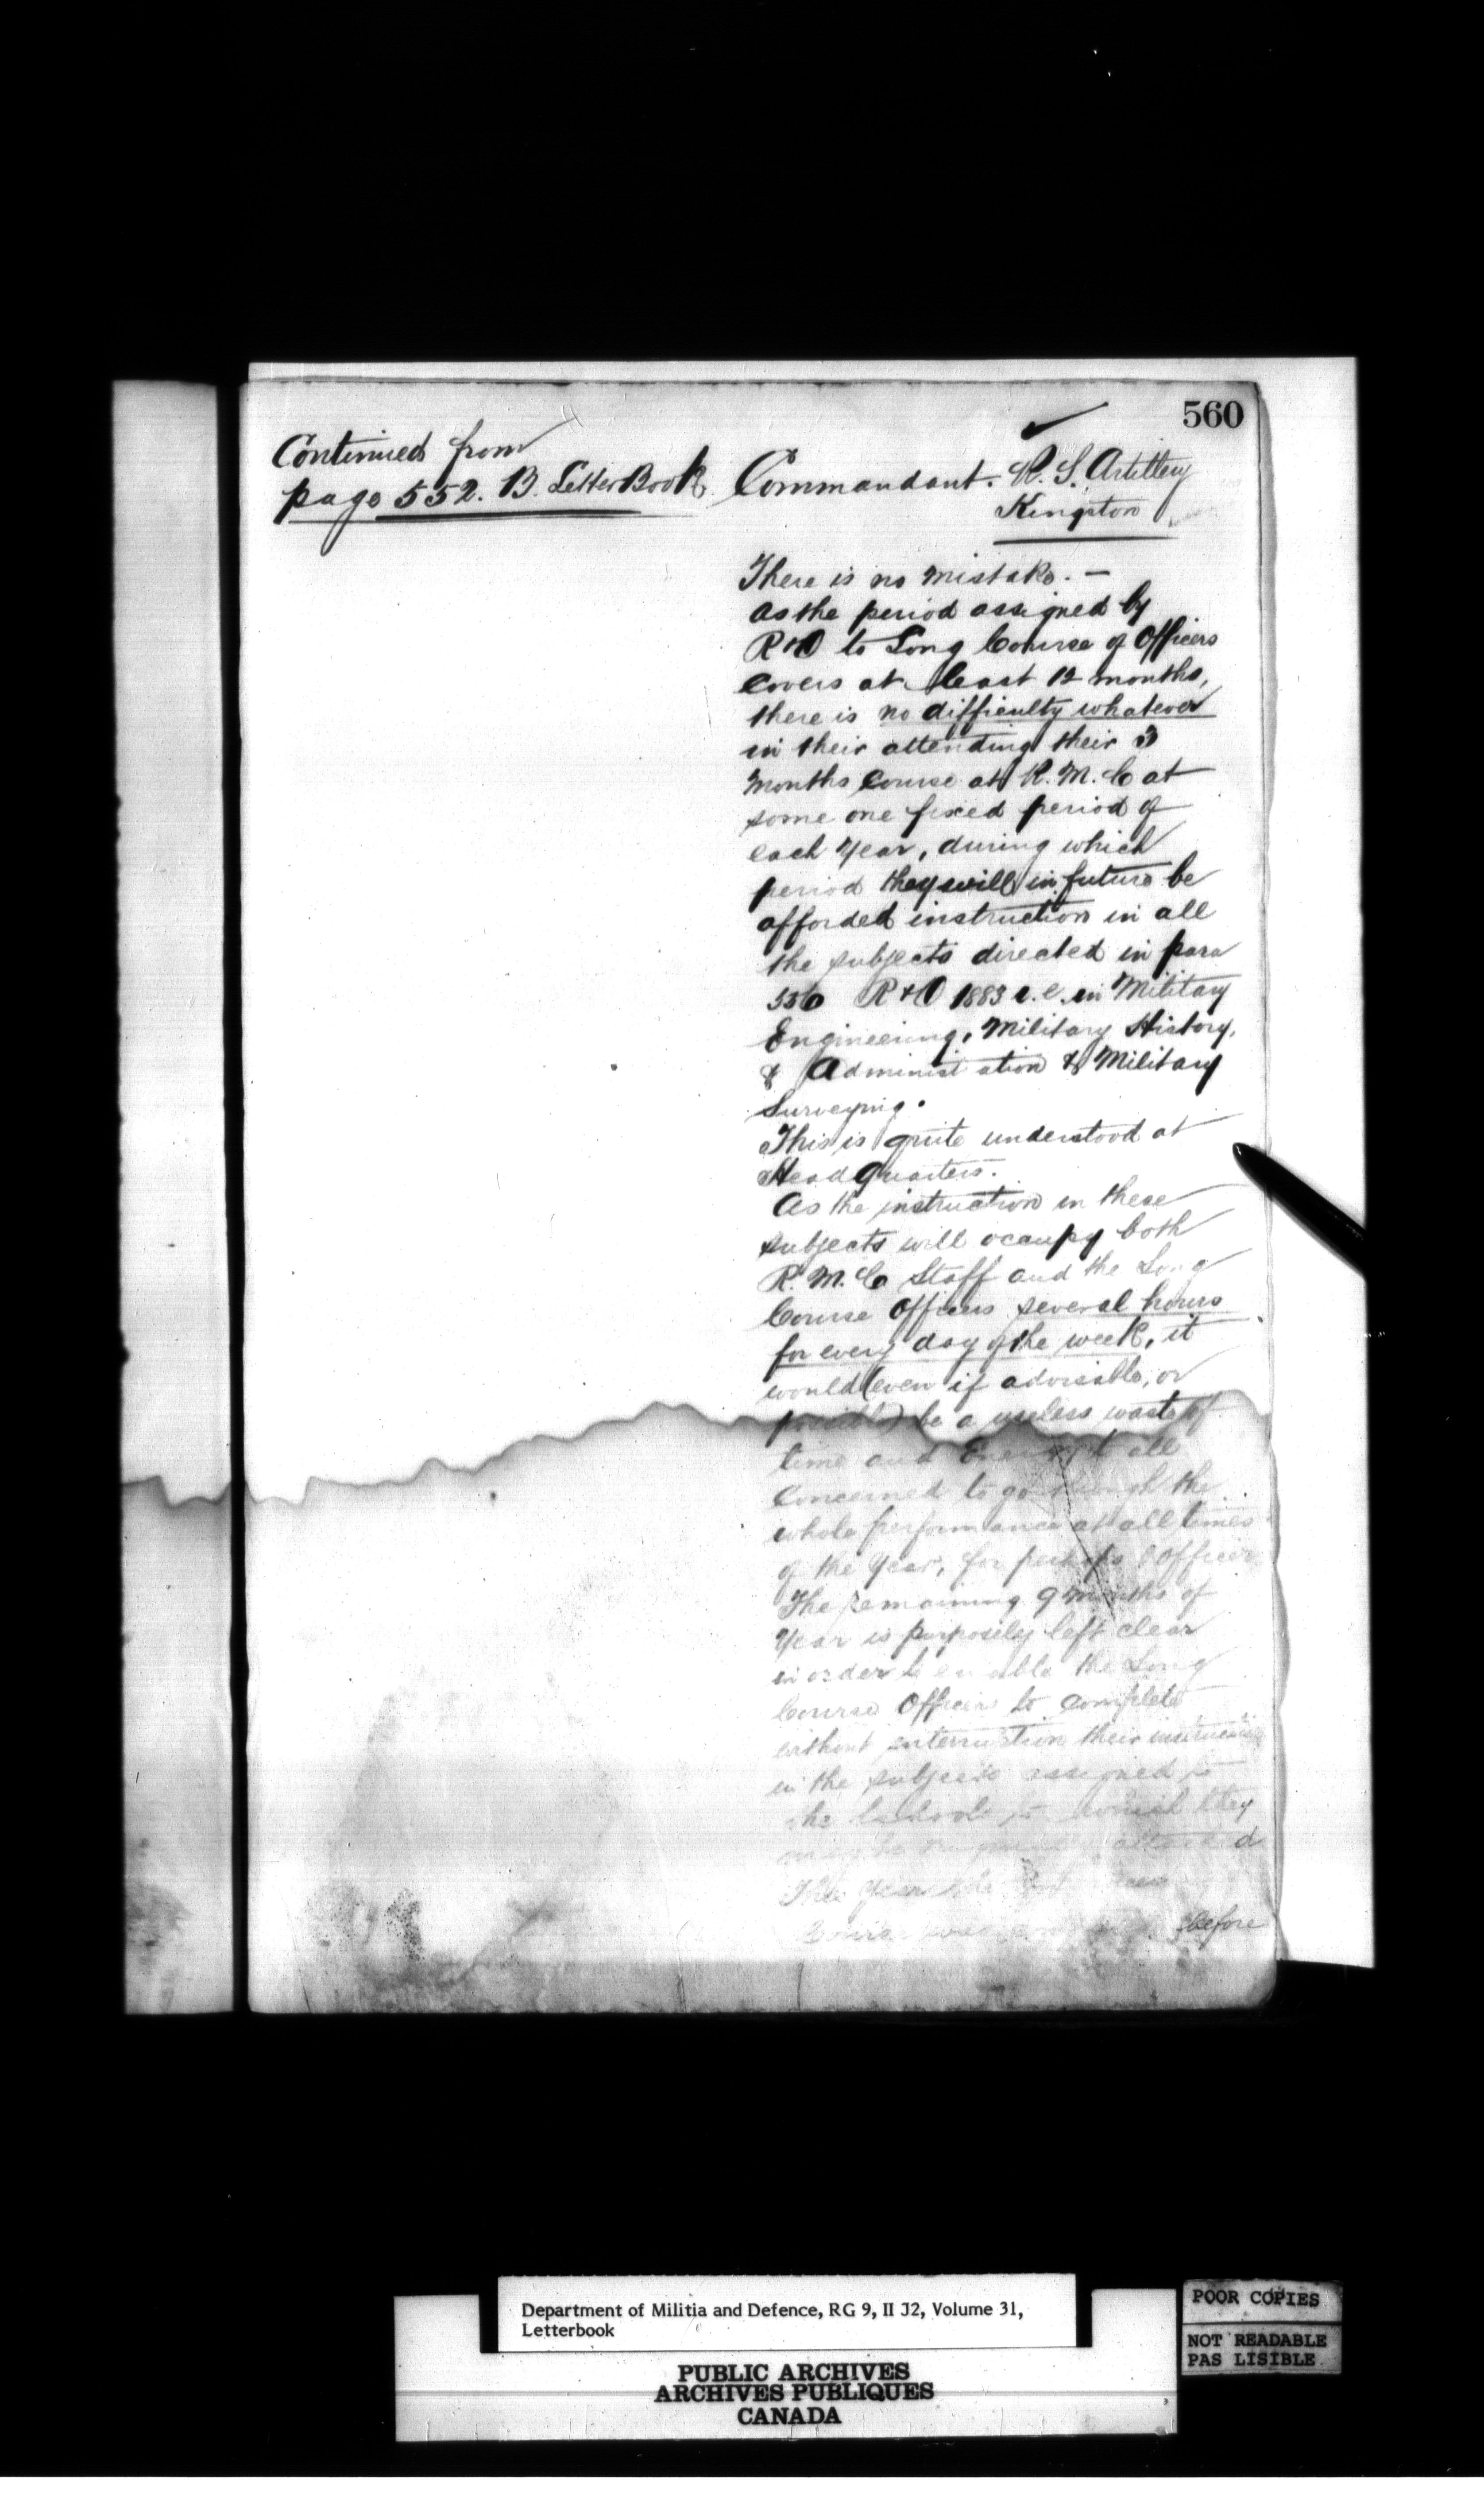 560
Continued from
page 552. B. Letter Book
Commandant. R. S. Artillery
Kingston
There is no mistake. —
As the period assigned by
R & O to Long Course of Officers
covers at least 12 months,
there is no difficulty whatever
in their attending their 3
months Course at R. M. C at
some one fixed period of
each Year, during which
period they will in future be
afforded instruction in all
the subjects directed in para
556 R & O 1883 i.e. in Military
Engineering, Military History,
& Administration & Military
Surveying.
This is quite understood at
Head Quarters.
As the instruction in these
subjects will occupy both
R. M. C Staff and the Long
Course Officers several hours
for every day of the week, it
would (even if advisable, or
possible) be a useless waste of
time and Energy to all
concerned to go through the
whole performance at all times
of the Year, for perhaps 1 Officer
The remaining 9 months of
Year is purposely left clear
in order to enable the Long
Course Officers to complete
without interruption their instruction
in the subjects assigned to
the Schools to which they
may be attached
This Year the
Course before
Department of Militia and Defence, RG 9, II J2, Volume 31,
Letterbook
PUBLIC ARCHIVES
ARCHIVES PUBLIQUES
CANADA
POOR COPIES
NOT READABLE
PAS LISIBLE